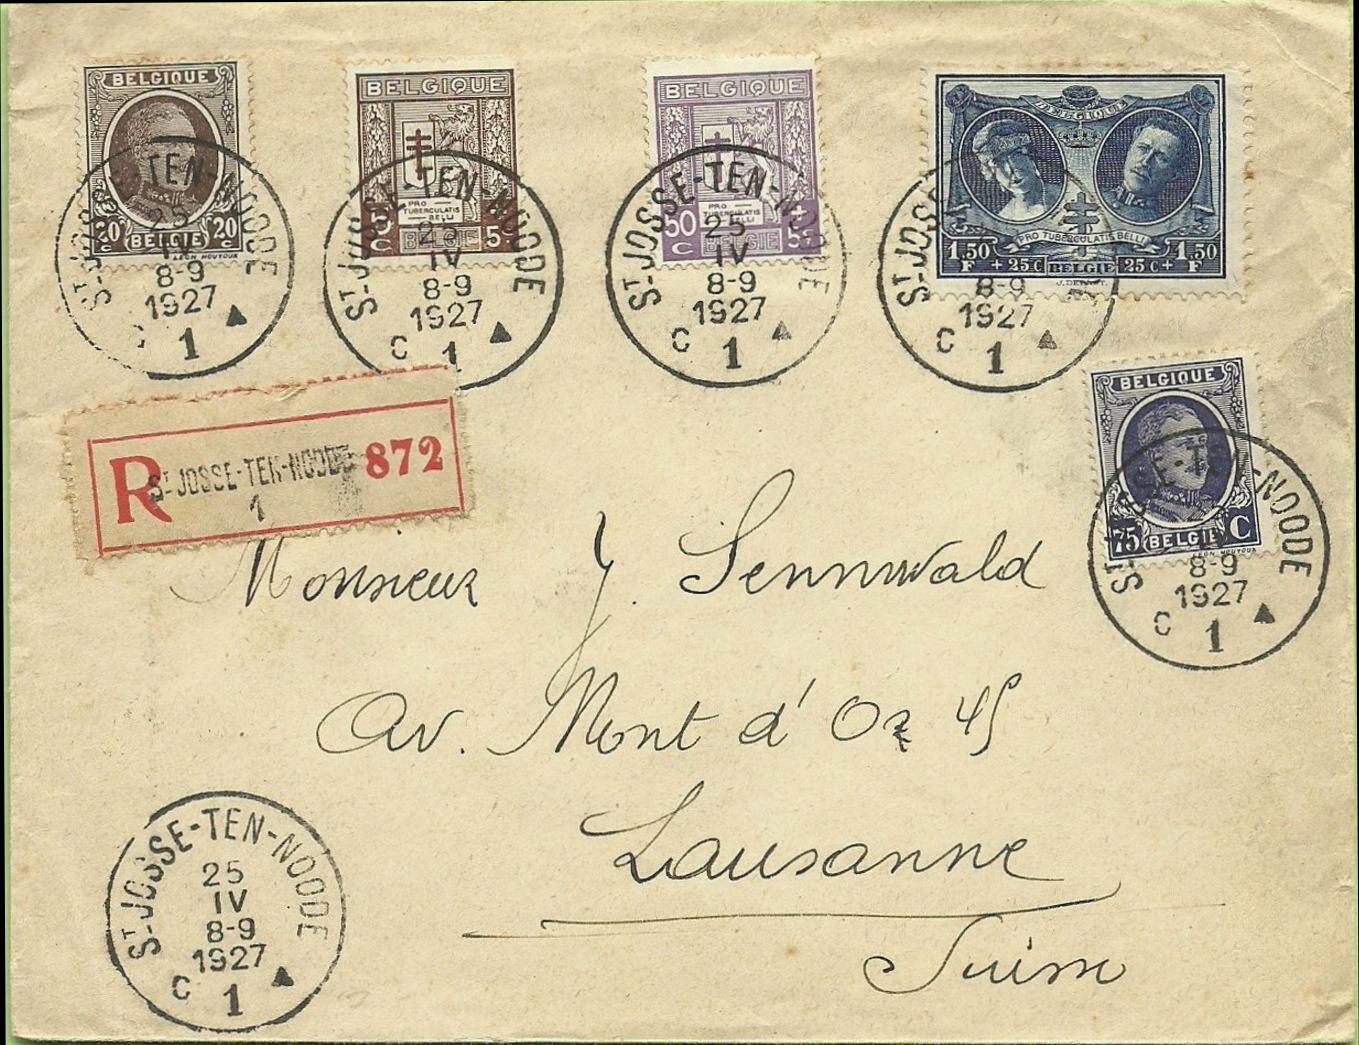 BELGIQUE
20 C BELGIE 20 C
LEON HOUYOUX
BELGIQUE
PRO
TUBERCULATIS
BELLI
5 C BELGIE 5
BELGIQUE
PRO
TUBERCULATIS
BELLI
50 C BELGIE 5
PRO TUBERCULATIS BELLI
1.50 F + 25 C BELGIE 25 C + 1.50 F
ST-JOSSE-TEN-NOODE
25
8-9
1927
C 1
ST-JOSSE-TEN-NOODE
25
IV
8-9
1927
C 1
ST-JOSSE-TEN-NOODE
25
IV
8-9
1927
C 1
ST-JOSSE
8-9
1927
C 1
BELGIQUE
75 BELGIE C
LEON HOUYOUX
ST-JOSSE-TEN-NOODE
8-9
1927
C 1
R ST JOSSE-TEN-NOODE 872
1
Monsieur J. Sennwald
Av. Mont d'Or 45
Lausanne
Suisse
ST-JOSSE-TEN-NOODE
25
IV
8-9
1927
C 1